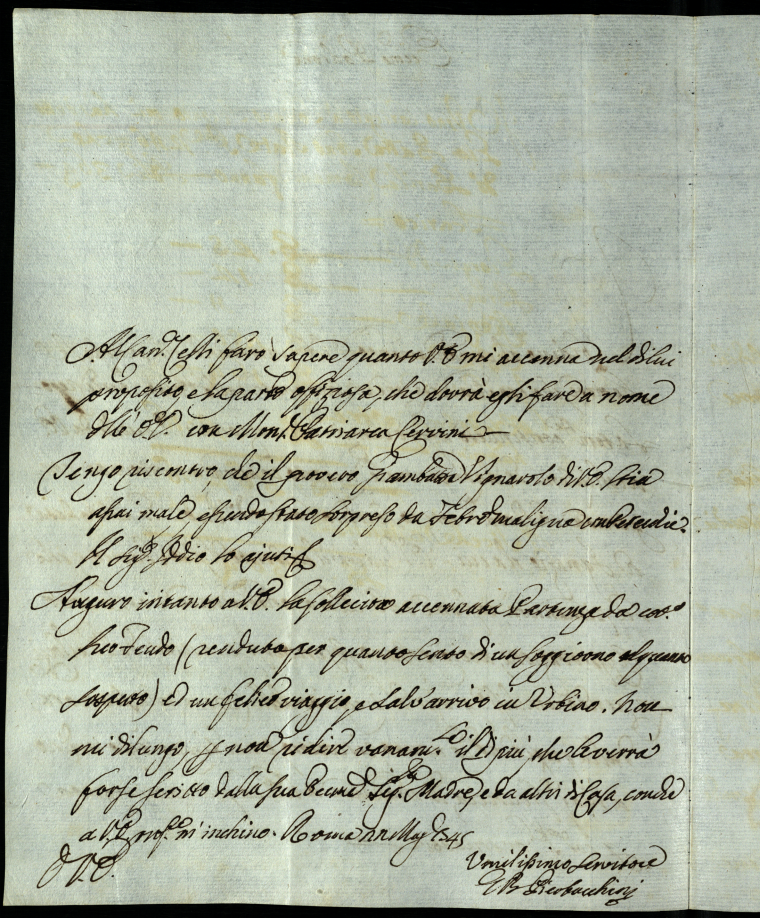 Al Can.co Celli farò sapere quanto V.E. mi accenna nel di lui
proposito, e la parte offiziosa, che dovrà egli fare a nome
dell' E.V. con Mons.r Patriarca Cervini
Tengo riscontro, che il povero Giambatta Vignarolo di V.E. stia
assai male, essendo stato sorpreso da Febre maligna con Petecchie.
Il Sig.re Iddio lo ajuti
Auguro intanto a V.E. la sollecita accennata Partenza da cot.o
suo Feudo (renduto per quanto sento di un soggiorno alquanto
sospetto) ed un felice viaggio, e salvo arrivo in Urbino. Non
mi dilungo, p non ridire vanam.te il di più, che le verrà
forse scritto dalla sua Sig.ra Madre, e da altri di Casa, con che
a V.E. m'inchino. Roma Mag.
D V.E.
Umilissimo Servitore